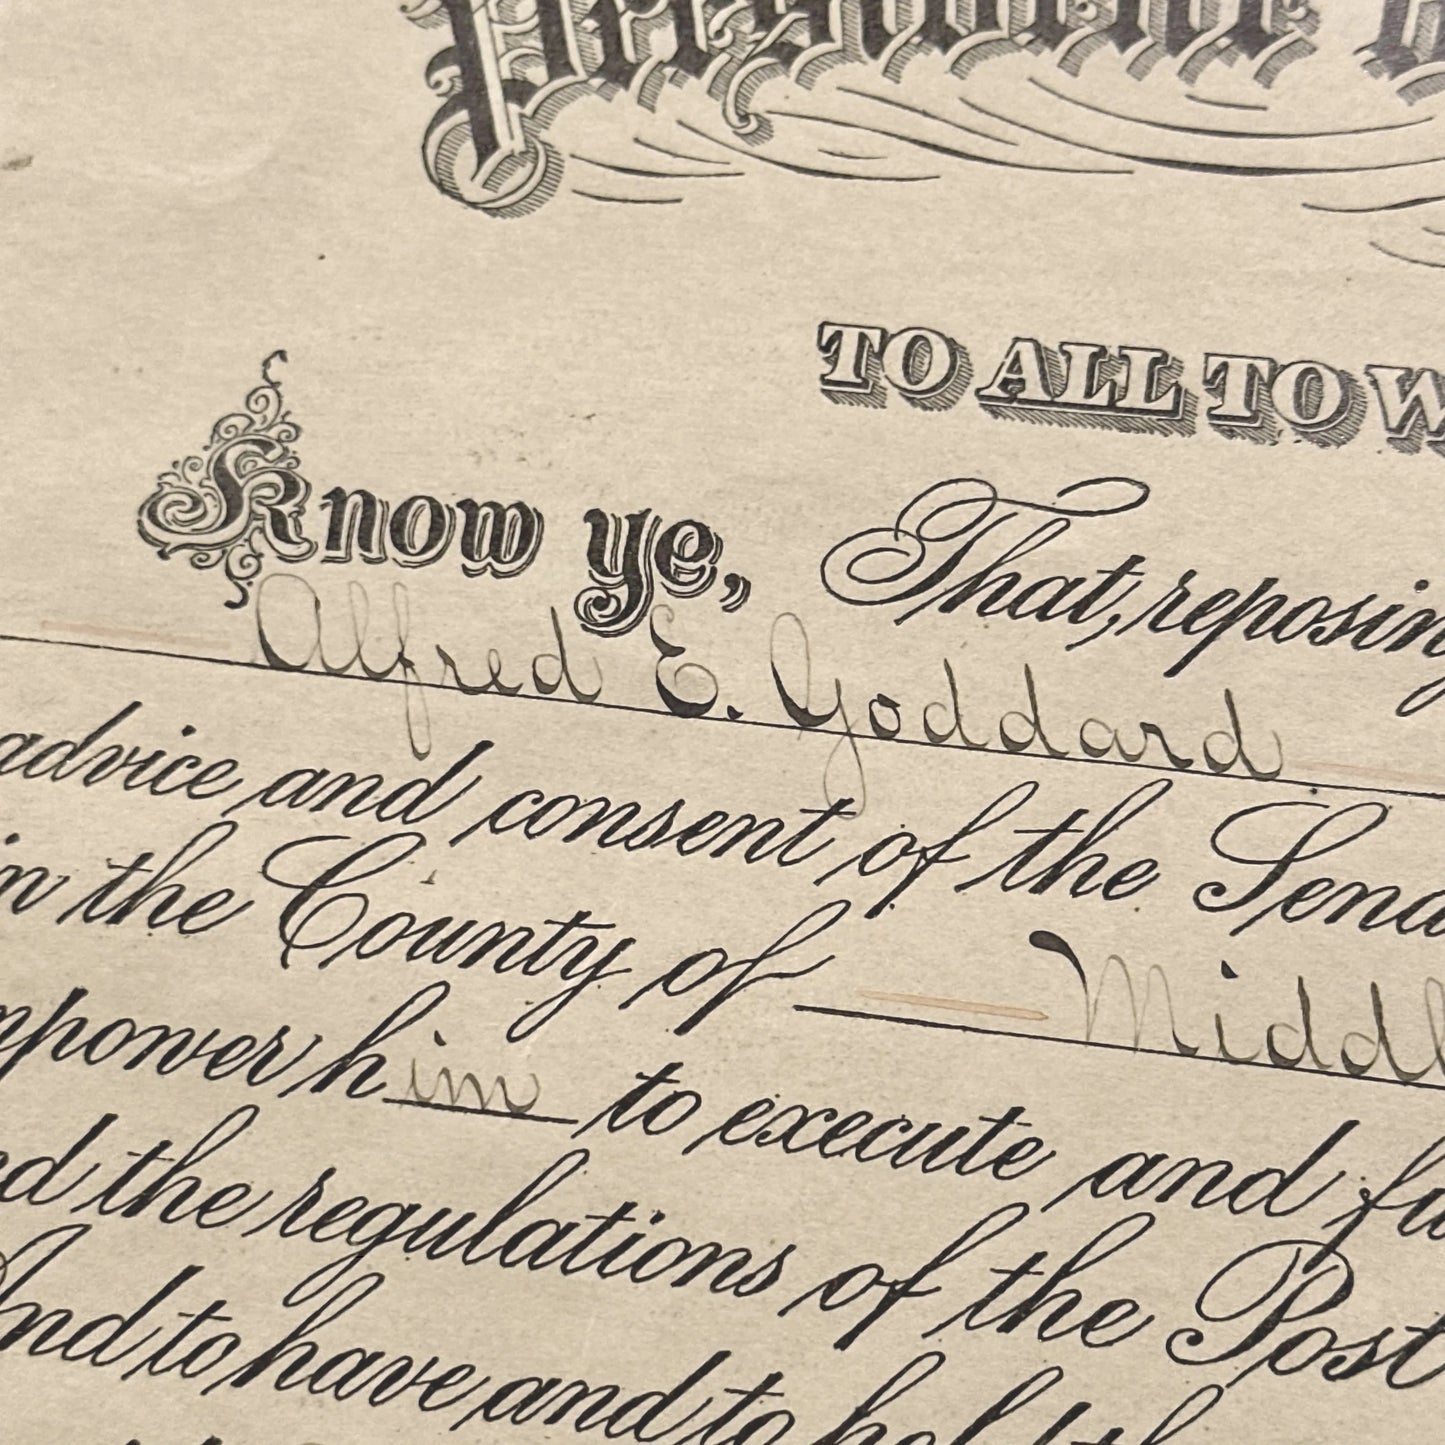 President
TO ALL TO W
Know ye, That, reposing
Alfred E. Goddard
advice and consent of the Sena
in the County of Middl
mpower him to execute and fu
ed the regulations of the Post
And to have and to hold th